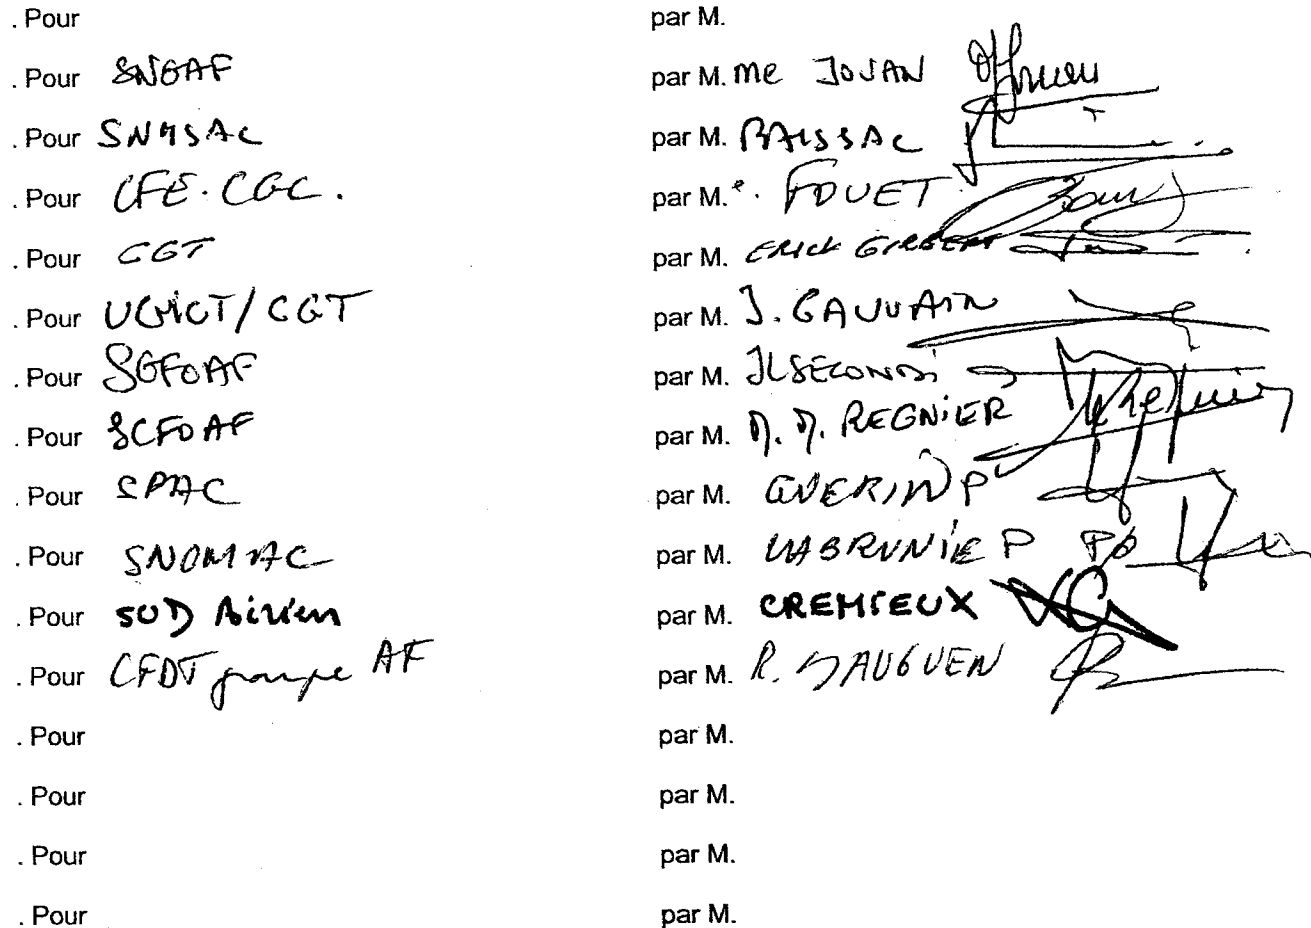 . Pour par M.
. Pour SNGAF par M. me JOUAN
. Pour SNMSAC par M. BAISSAC
. Pour CFE.CGC. par M.e. FOUET
. Pour CGT par M. ERICK
. Pour UGICT/CGT par M. J. GAUVAIN
. Pour SGFOAF par M. JL SECONDI
. Pour SCFOAF par M. M. M. REGNIER
. Pour SPAC par M. GUERIN P
. Pour SNOMAC par M. LABRUNIE P PO
. Pour SUD Aérien par M. CREMIEUX
. Pour CFDT groupe AF par M. R. MAUGUEN
. Pour par M.
. Pour par M.
. Pour par M.
. Pour par M.